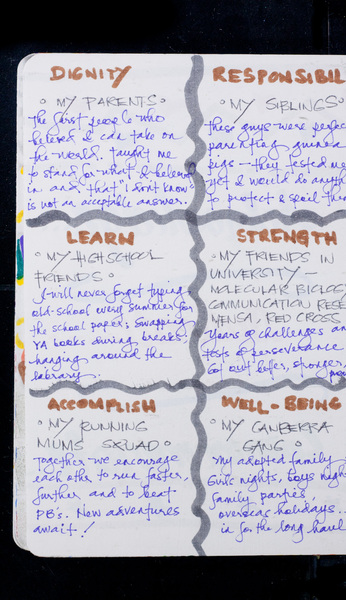 DIGNITY
• MY PARENTS •
The first people who
believed I can take on
the world. Taught me
to stand for what I believe
in and that "I don't know"
is not an acceptable answer.
RESPONSIBIL
• MY SIBLINGS •
these guys were perfec
parenting guinea
pigs – they tested me
yet I would do anyth
to protect & spoil them
LEARN
• MY HIGH SCHOOL
FRIENDS •
I will never forget typing
old-school every summer for
the school paper, swapping
YA books during breaks,
hanging around the
library.
STRENGTH
• MY FRIENDS IN
UNIVERSITY –
MOLECULAR BIOLOGY
COMMUNICATION RESE
MENSA, RED CROSS
Years of challenges an
tests of perseverance
Got out safer, stronger,
ACCOMPLISH
• MY RUNNING
MUMS SQUAD •
Together we encourage
each other to run faster,
further and to beat
PB's. New adventures
await!
WELL-BEING
• MY CANBERRA
GANG •
My adopted family
Girls nights, boys nigh
family parties,
overseas holidays..
in for the long haul